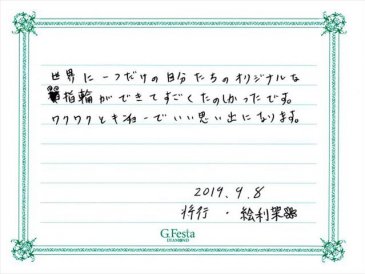 世界に一つだけの自分たちのオリジナルな
指輪ができてすごくたのしかったです。
ワクワクとキンチョーでいい思い出になります。
2019.9.8
将行・絵利果
G.Festa
DIAMOND